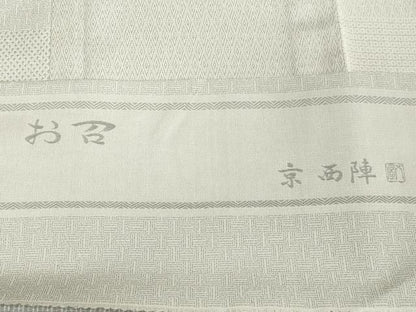 お召
京西陣